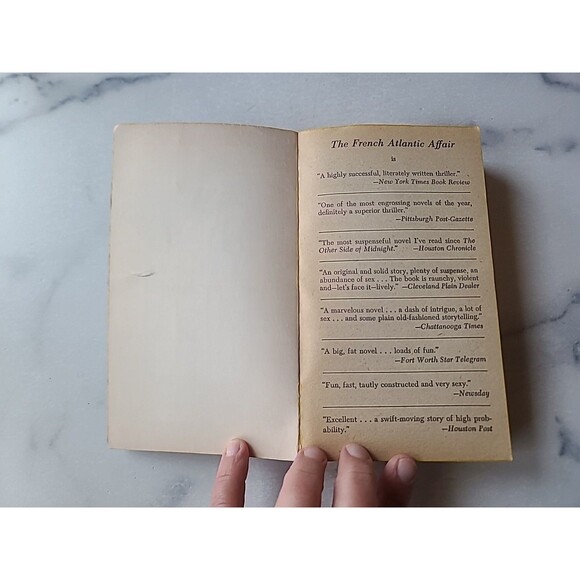 The French Atlantic Affair
is
"A highly successful, literately written thriller."
—New York Times Book Review
"One of the most engrossing novels of the year,
definitely a superior thriller."
—Pittsburgh Post-Gazette
"The most suspenseful novel I've read since The
Other Side of Midnight." —Houston Chronicle
"An original and solid story, plenty of suspense, an
abundance of sex . . . The book is raunchy, violent
and—let's face it—lively." —Cleveland Plain Dealer
"A marvelous novel . . . a dash of intrigue, a lot of
sex . . . and some plain old-fashioned storytelling."
—Chattanooga Times
"A big, fat novel . . . loads of fun."
—Fort Worth Star Telegram
"Fun, fast, tautly constructed and very sexy."
—Newsday
"Excellent . . . a swift-moving story of high prob-
ability." —Houston Post